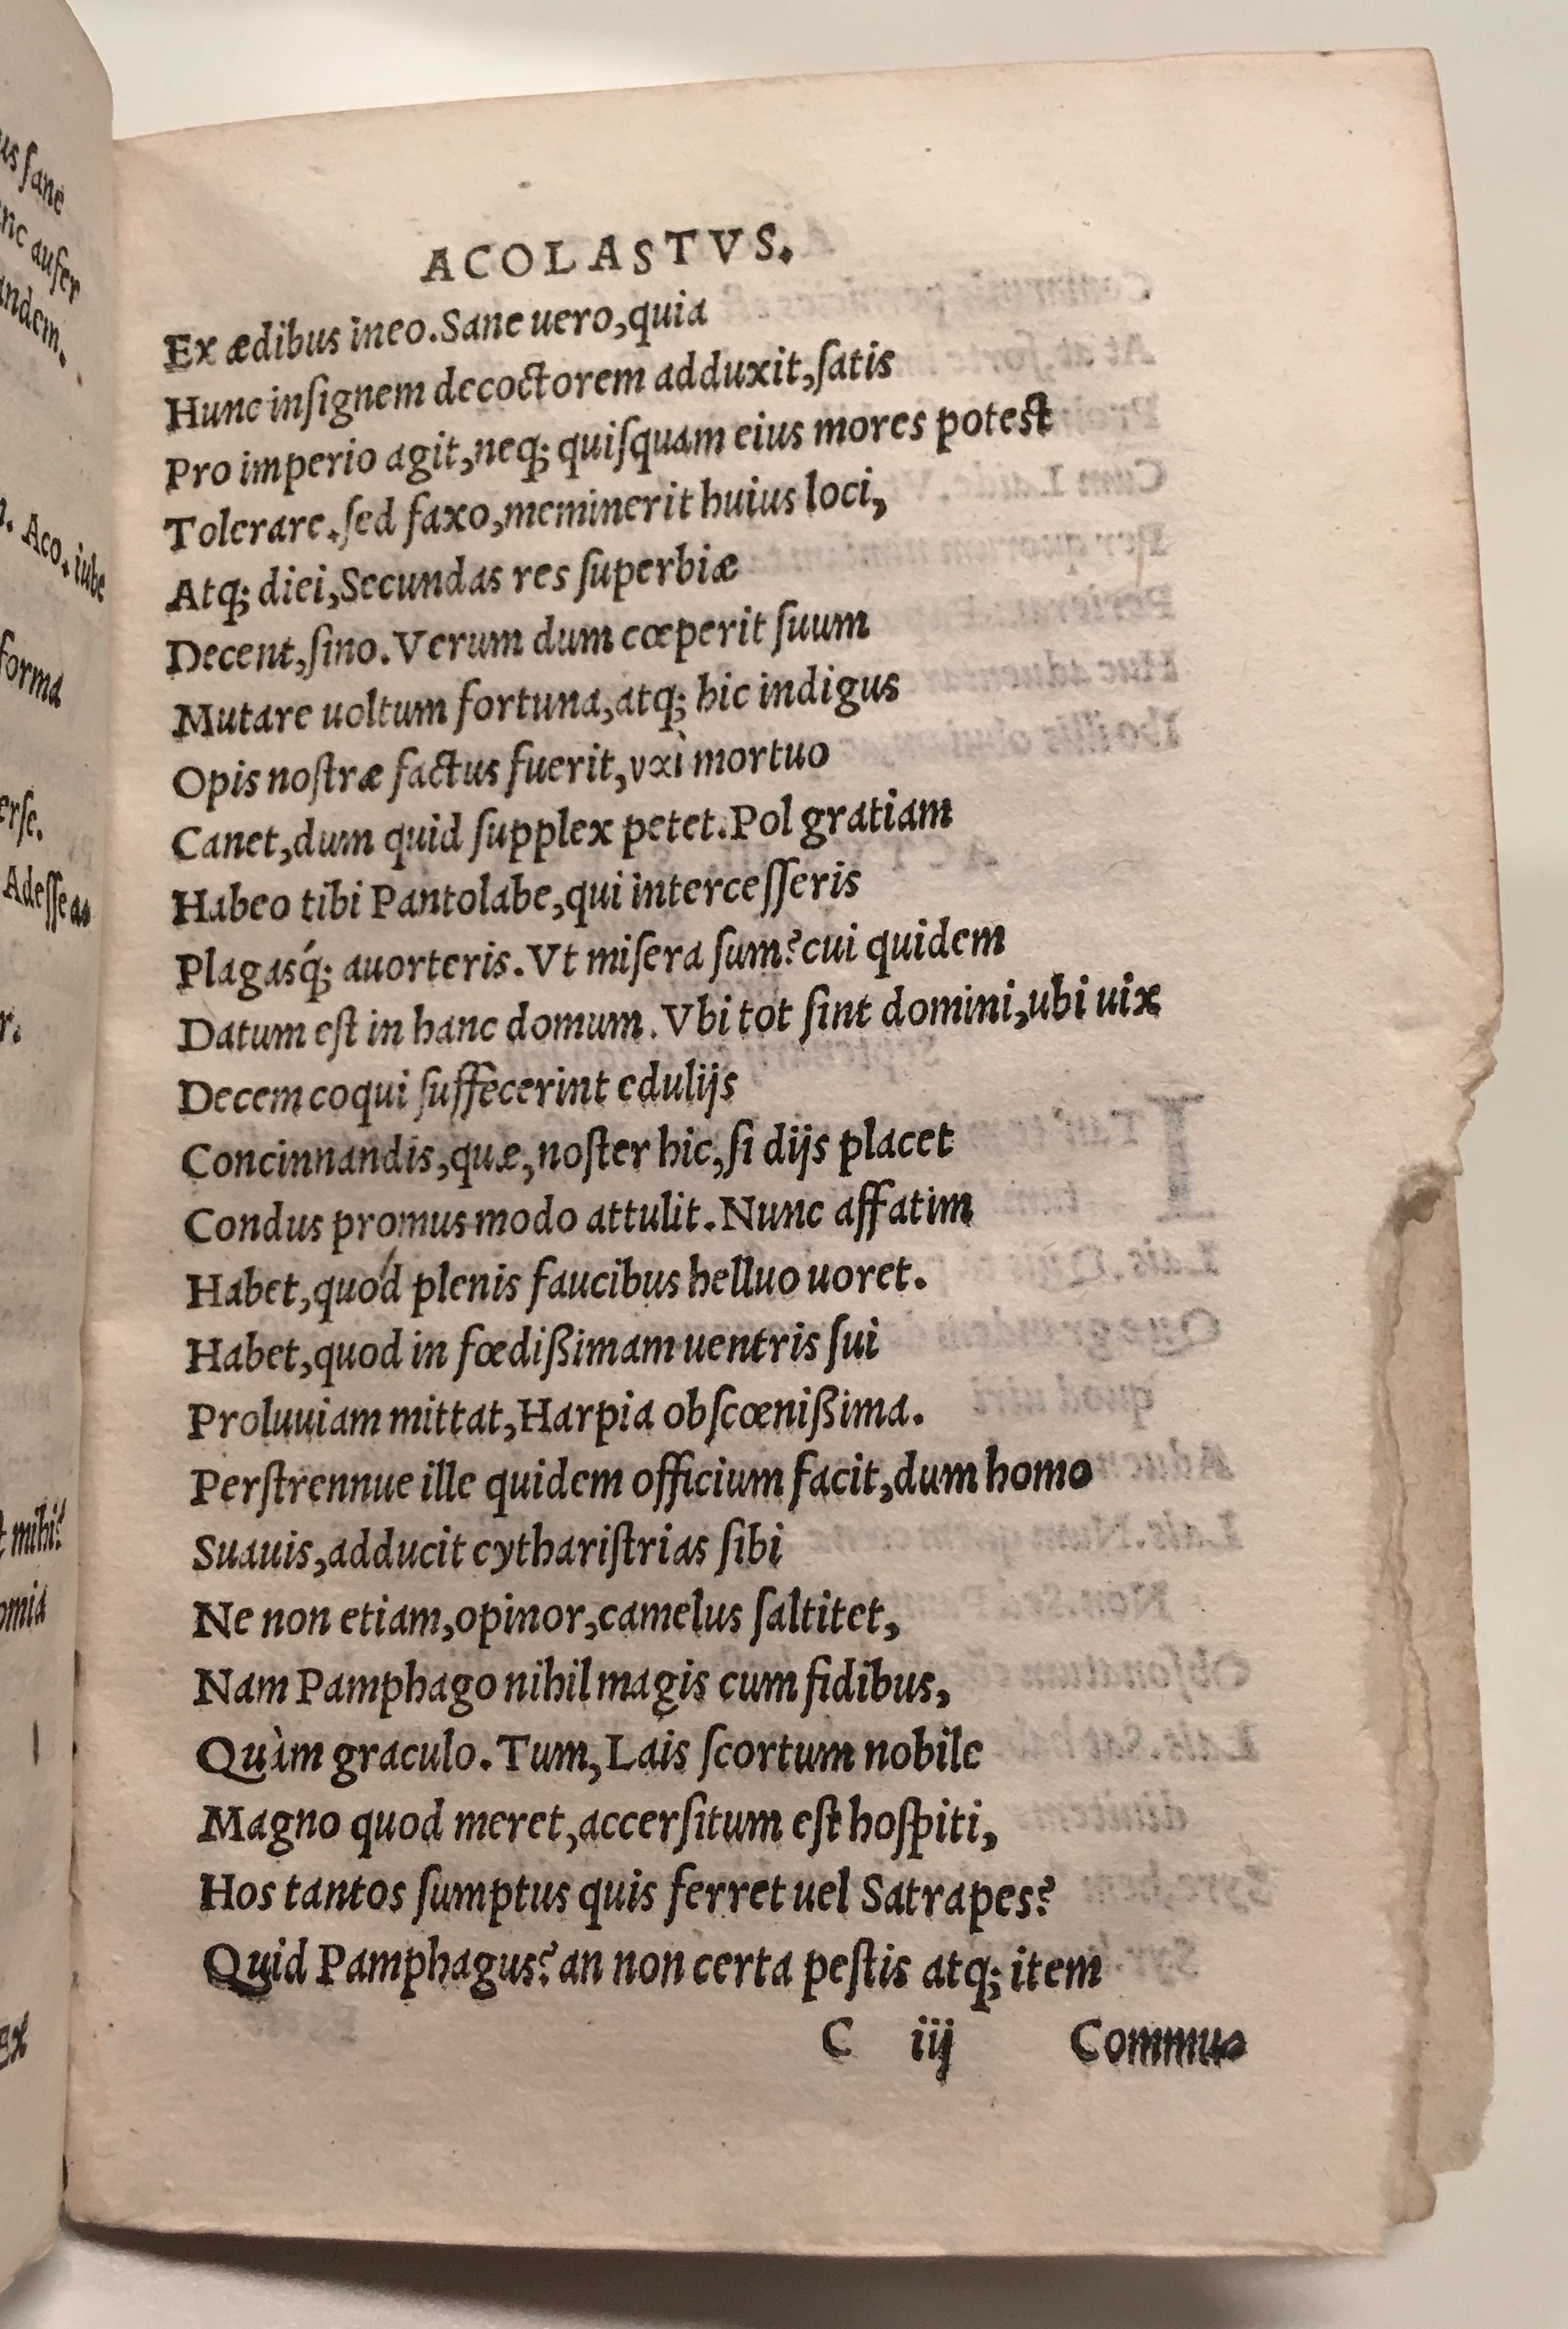 us ſane
nc aufer
andem.
. Aco. iube
forma
erſe.
Adeſſe
r.
mihi?
omia
Ex
ACOLASTVS.
Ex ædibus ineo. Sane uero, quia
Hunc inſignem decoctorem adduxit, ſatis
Pro imperio agit, neq; quiſquam eius mores poteſt
Tolerare. ſed faxo, meminerit huius loci,
Atq; diei, Secundas res ſuperbiæ
Decent, ſino. Verum dum cœperit ſuum
Mutare uoltum fortuna, atq; hic indigus
Opis noſtræ factus fuerit, mortuo
Canet, dum quid ſupplex petet. Pol gratiam
Habeo tibi Pantolabe, qui interceſſeris
Plagasq́; auorteris. Vt miſera ſum? cui quidem
Datum eſt in hanc domum. Vbi tot ſint domini, ubi uix
Decem coqui ſuffecerint edulijs
Concinnandis, quæ, noſter hic, ſi dijs placet
Condus promus modo attulit. Nunc affatim
Habet, quód plenis faucibus helluo uoret.
Habet, quod in fœdißimam uentris ſui
Proluuiam mittat, Harpia obſcœnißima.
Perſtrennue ille quidem officium facit, dum homo
Suauis, adducit cythariſtrias ſibi
Ne non etiam, opinor, camelus ſaltitet,
Nam Pamphago nihil magis cum fidibus,
Quàm graculo. Tum, Lais ſcortum nobile
Magno quod meret, accerſitum eſt hoſpiti,
Hos tantos ſumptus quis ferret uel Satrapes?
Quid Pamphagus? an non certa peſtis atq; item
C iij Commu-